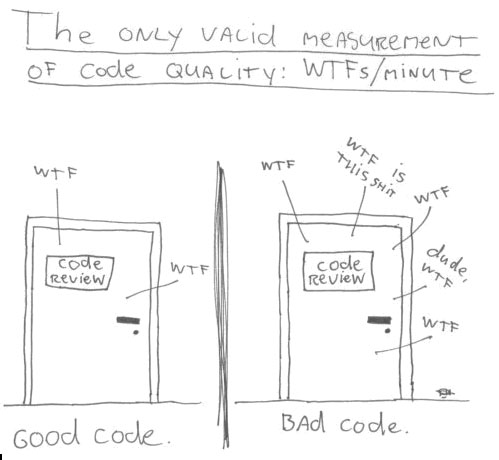 The ONLY VALID MEASUREMENT
OF Code QUALITY: WTFs/MINUTE
WTF
Code
REVIEW
WTF
Good code.
WTF
WTF is
THIS SHIT
WTF
Code
REVIEW
dude,
WTF
WTF
BAd code.